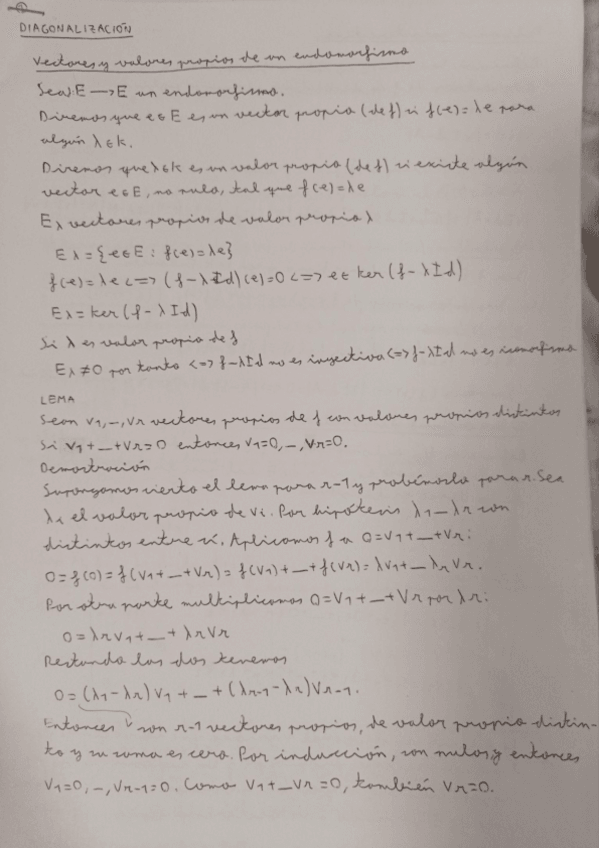 ①
DIAGONALIZACIÓN
Vectores y valores propios de un endomorfismo
Sea f: E → E un endomorfismo.
Diremos que e ∈ E es un vector propio (de f) si f(e) = λe para
algún λ ∈ k.
Diremos que λ ∈ k es un valor propio (de f) si existe algún
vector e ∈ E, no nulo, tal que f(e) = λe
Eλ vectores propios de valor propio λ
Eλ = {e ∈ E : f(e) = λe}
f(e) = λe <=> (f - λId)(e) = 0 <=> e ∈ ker(f - λId)
Eλ = ker(f - λId)
Si λ es valor propio de f
Eλ ≠ 0 por tanto <=> f - λId no es inyectiva <=> f - λId no es isomorfismo
LEMA
Sean v1, _, vr vectores propios de f con valores propios distintos
Si v1 + _ + vr = 0 entonces v1 = 0, _, vr = 0.
Demostración
Supongamos cierto el lema para r-1 y probémoslo para r. Sea
λi el valor propio de vi. Por hipótesis λ1 _ λr son
distintos entre sí. Aplicamos f a 0 = v1 + _ + vr:
0 = f(0) = f(v1 + _ + vr) = f(v1) + _ + f(vr) = λv1 + _ λr vr.
Por otra parte multiplicamos 0 = v1 + _ + vr por λr:
0 = λr v1 + _ + λr vr
Restando las dos tenemos
0 = (λ1 - λr) v1 + _ + (λr-1 - λr) vr-1.
Entonces son r-1 vectores propios, de valor propio distin-
to y su suma es cero. Por inducción, son nulos y entonces
v1 = 0, _, vr-1 = 0. Como v1 + _ vr = 0, también vr = 0.